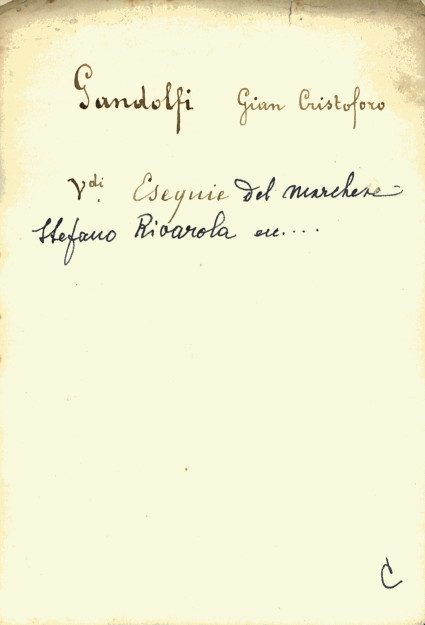 Gandolfi Gian Cristoforo
Vdi Esequie Del marchese
Stefano Rivarola ecc....
C